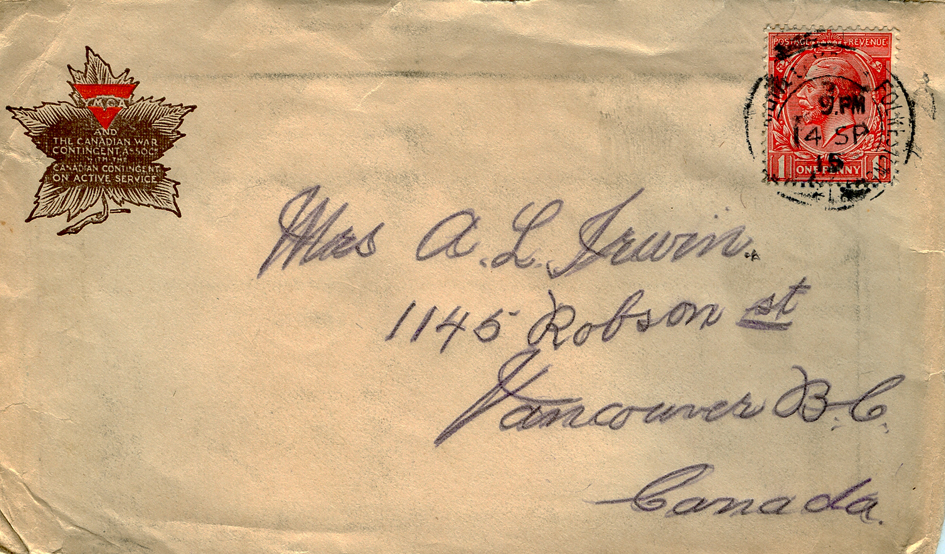 YMCA
AND
THE CANADIAN WAR
CONTINGENT ASSOC.
WITH THE
CANADIAN CONTINGENT
ON ACTIVE SERVICE
POSTAGE REVENUE
9. PM
14 SP
15
1 ONE PENNY 1
Mrs A. L. Irwin.
1145 Robson st
Vancouver B.C.
Canada.